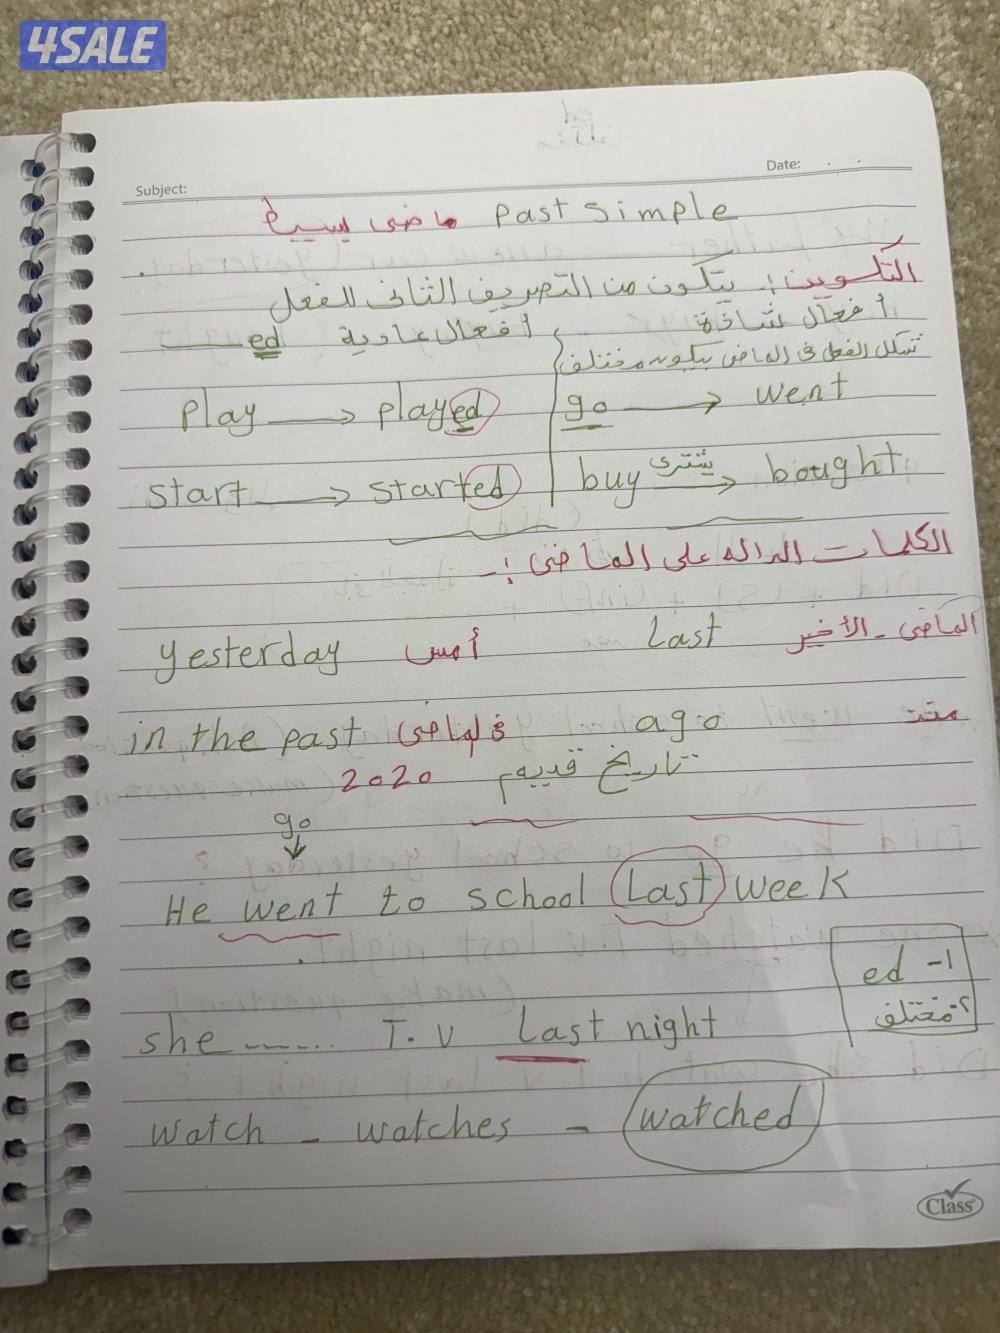 4SALE
Subject:
Date:
ماضى بسيط past simple
التكوين: يتكون من التصريف الثانى للفعل
أفعال شاذة
أفعال عادية ed
شكل الفعل فى الماضى بيكون مختلف
play → played
go → went
start → started
buy يشترى → bought
الكلمات الداله على الماضى :-
yesterday أمس
last الماضى - الأخير
in the past فى الماضى
ago منذ
تاريخ قديم 2020
go
↓
He went to school Last week
ed -1
مختلف
she ...... T.V Last night
watch - watches - watched
Class